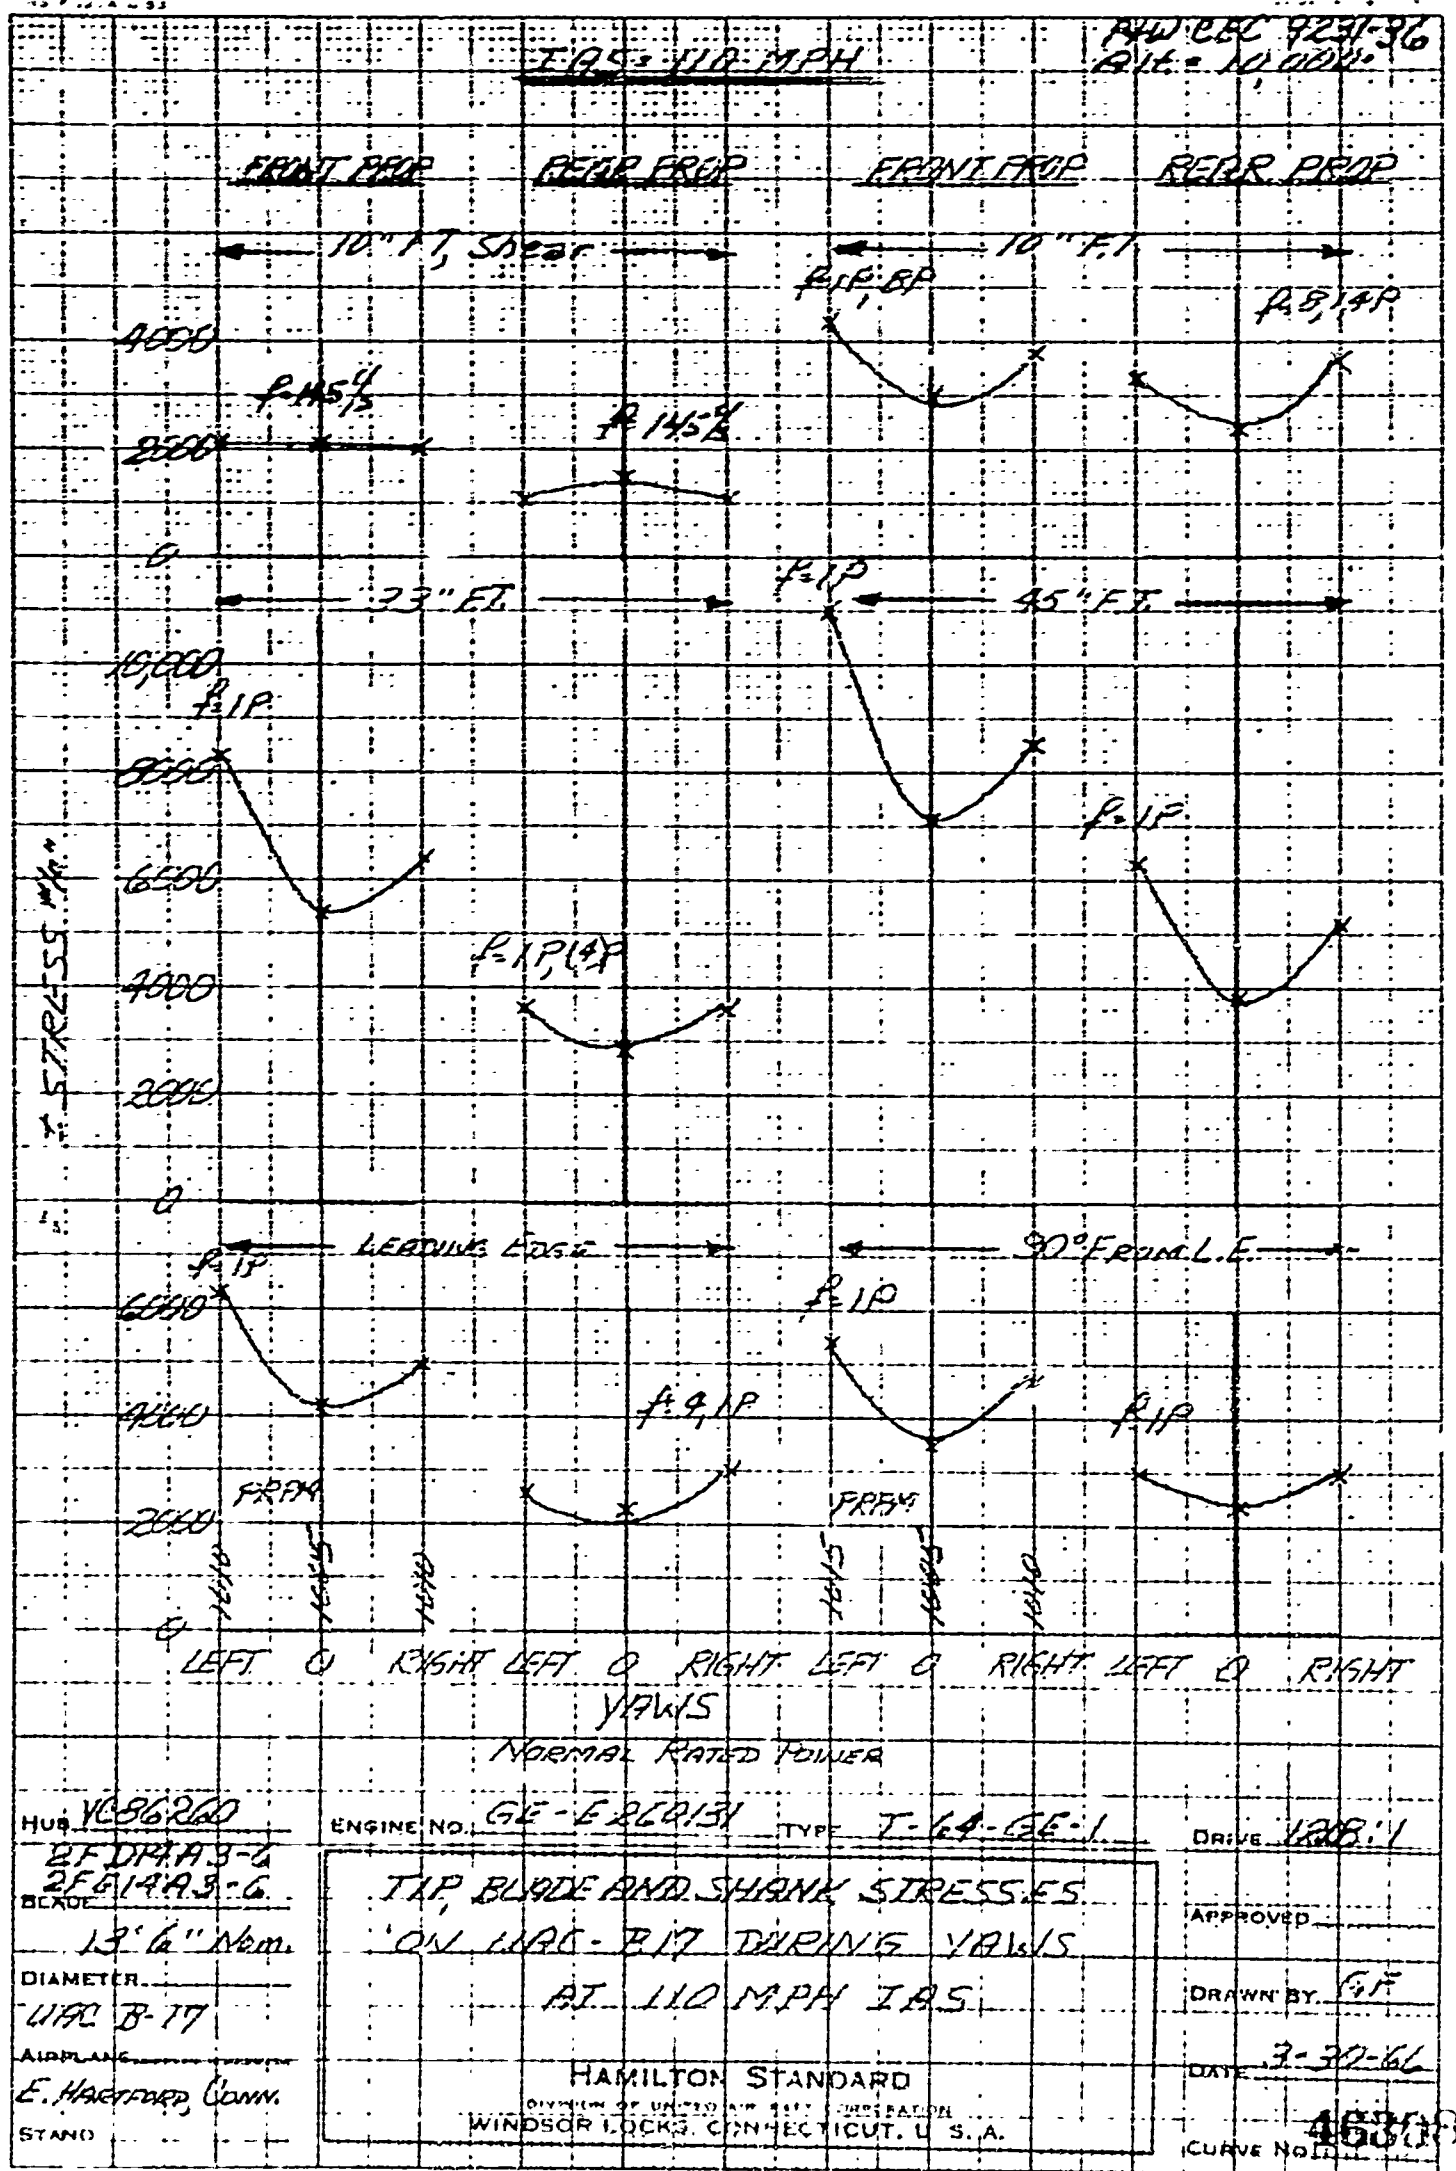 IAS = 110 MPH
Alt. = 10,000'
FRONT PROP REAR PROP FRONT PROP REAR PROP
10" F.T. Shear 10" F.T.
f=1P, 8P
f=8, 1, 4P
4000
f=145 c/s
f=145 c/s
2000
0
f=1P
33" F.T. 45" F.T.
10,000
f=1P
8000
f=1P
6000
± STRESS #/in"
f=1P, (4)P
4000
2000
0
LEADING EDGE 90° FROM L.E.
f=1P
6000
f=1P
4000
f=4, 1P
f=1P
PRPM PRPM
2000
0
LEFT 0 RIGHT LEFT 0 RIGHT LEFT 0 RIGHT LEFT 0 RIGHT
YAWS
NORMAL RATED POWER
HUB VC86260 ENGINE NO. GE-E260131 TYPE T-64-GE-1 DRIVE
BLADE 2FE14A3-6
13'6" Nom.
DIAMETER
UAC B-17
AIRPLANE
E. HARTFORD, CONN.
STAND
TIP, BLADE AND SHANK STRESSES
ON UAC-B17 DURING YAWS
AT 110 MPH IAS
HAMILTON STANDARD
DIVISION OF UNITED AIRCRAFT CORPORATION
WINDSOR LOCKS, CONNECTICUT, U. S. A.
APPROVED
DRAWN BY GF
DATE 3-30-66
CURVE NO.